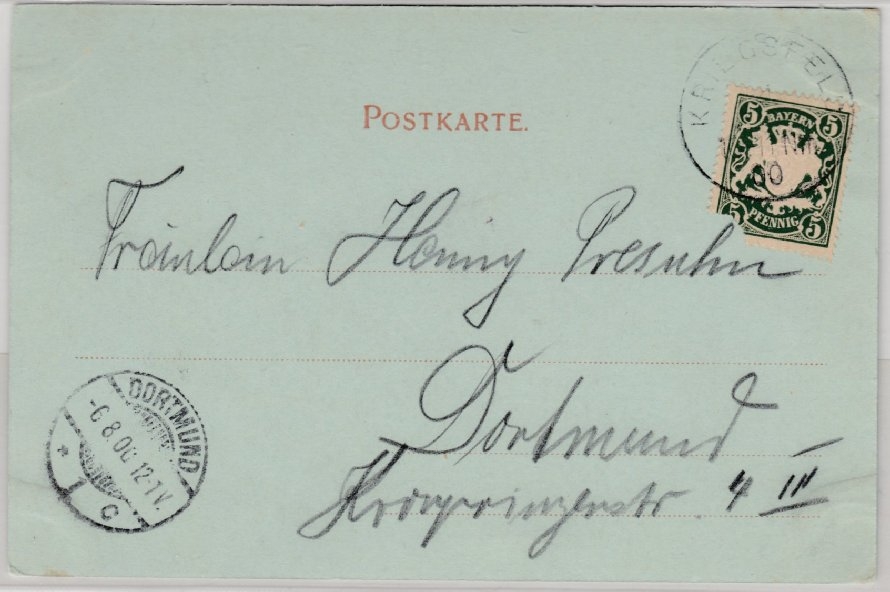 POSTKARTE.
KRIEGSFELD
00
5 BAYERN 5
5 PFENNIG 5
Fräulein Henny Presuhn
Dortmund
Kronprinzenstr. 4 III
DORTMUND
-6.8.00. 12-1V.
* 1 c